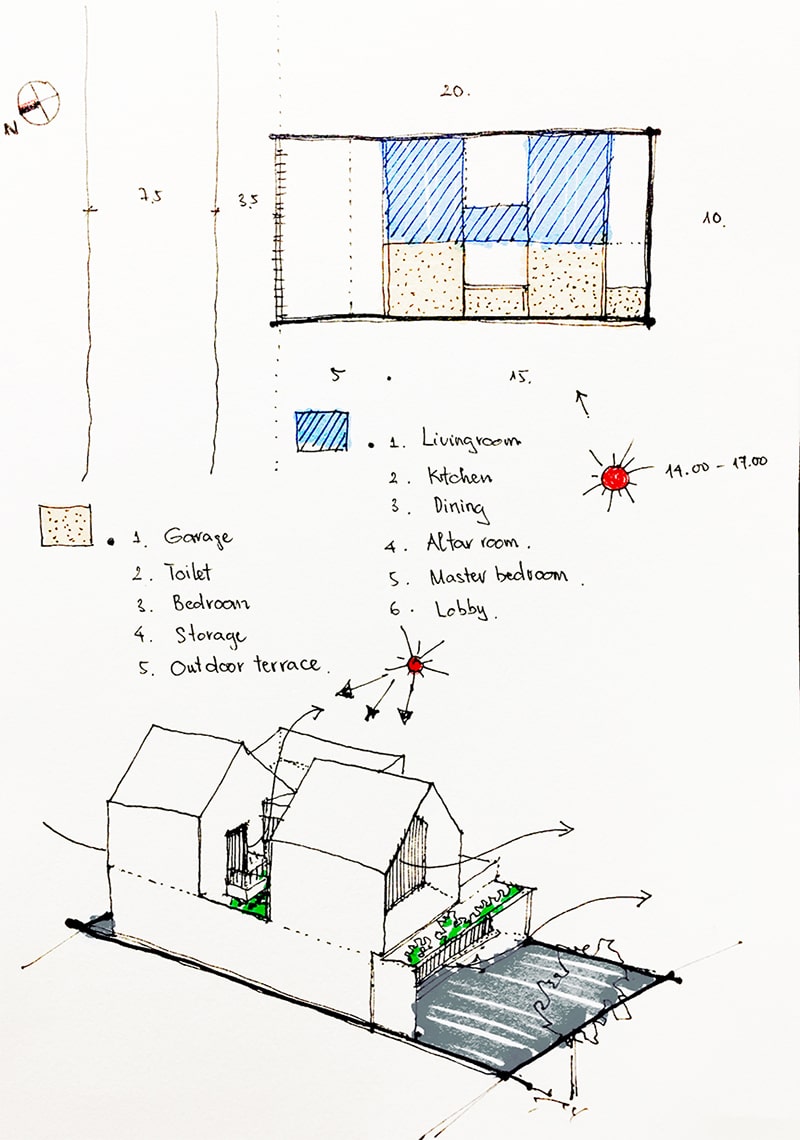 20.
N
7,5
3,5
10.
5
15.
1. Livingroom
2. Kitchen
3. Dining
4. Altar room.
5. Master bedroom.
6. Lobby.
14.00 - 17.00
1. Garage
2. Toilet
3. Bedroom
4. Storage
5. Outdoor terrace.